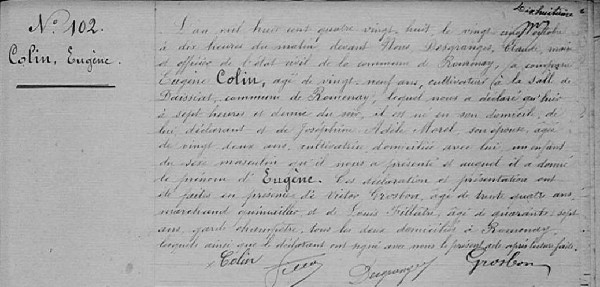 N° 102.
Colin, Eugène.
L'an mil huit cent quatre vingt huit le vingt
à dix heures du matin devant Nous Desgranges, Claude maire
et officier de l'état civil de la commune de Romenay, a comparu
Eugène Colin, âgé de vingt neuf ans, cultivateur à la Salle de
commune de Romenay, lequel nous a déclaré qu'hier
à sept heures et demie du soir, il est né en son domicile, de
lui déclarant et de Joséphine Adèle Morel, son épouse, âgée
de vingt deux ans, cultivatrice domiciliée avec lui, un enfant
du sexe masculin qu'il nous a présenté et auquel il a donné
le prénom d'Eugène. Ces déclaration et présentation ont
été faites en présence de Victor Grosbon, âgé de trente quatre ans
marchand quincailler et de Louis âgé de quarante sept
ans, garde champêtre, tous les deux domiciliés à Romenay,
lesquels ainsi que le déclarant ont signé avec nous le présent acte après lecture faite.
Colin Desgranges Grosbon